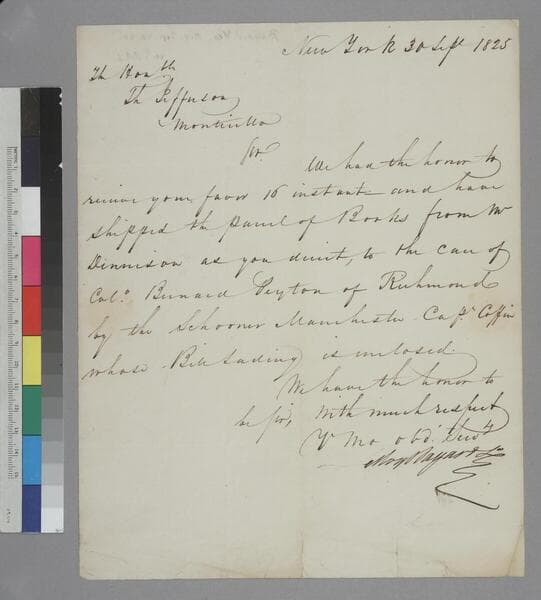 New York 30 Sept 1825
Th Honble
Th Jefferson
Monticello
Sir
We had the honor to
receive your favor 16 instant and have
shipped the parcel of Books from Mr
Dennison as you direct, to the care of
Colo. Bernard Peyton of Richmond
by the Schooner Manchester Capt Coffin
whose Bill Lading is inclosed.
We have the honor to
be Sir, With much respect
Y Mo obd. Servts
Bayard